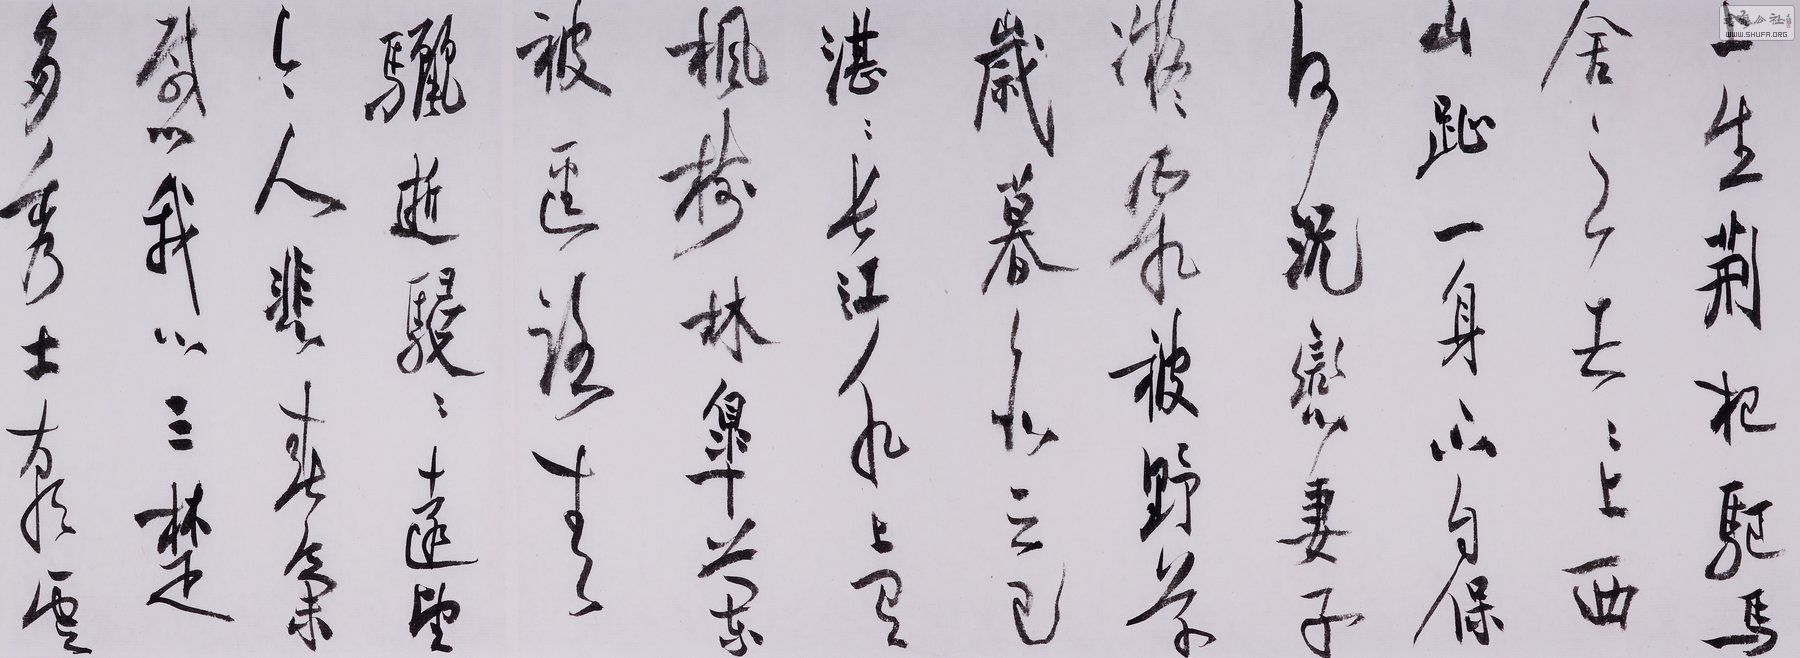 上生荆杞驅馬
舍之去去上西
山趾一身不自保
何況戀妻子
凝霜被野草
歲暮亦云已
湛湛長江水上有
楓樹林皋蘭
被逕路青
驪逝駸駸遠望
令人悲春氣
感我心三楚
多秀士朝雲
WWW.SHUFA.ORG